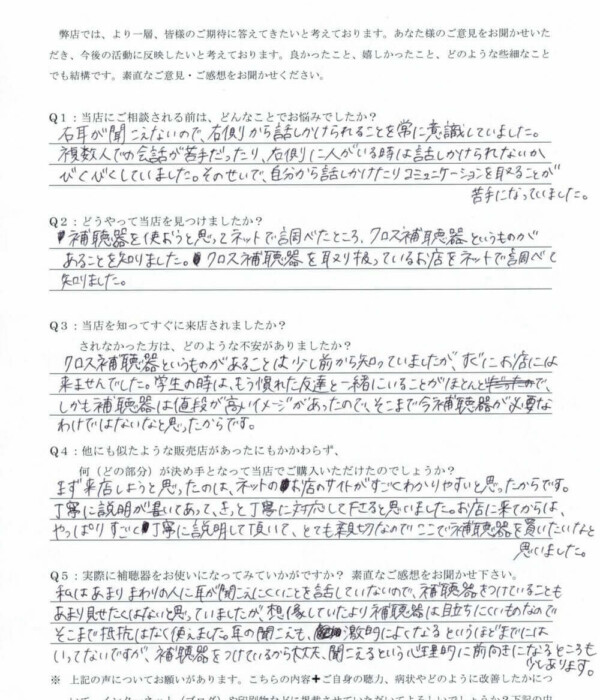 弊店では、より一層、皆様のご期待に答えてきたいと考えております。あなた様のご意見をお聞かせいた
だき、今後の活動に反映したいと考えております。良かったこと、嬉しかったこと、どのような些細なこと
でも結構です。素直なご意見・ご感想をお聞かせください。
Q1：当店にご相談される前は、どんなことでお悩みでしたか？
右耳が聞こえないので、右側から話しかけられることを常に意識していました。
複数人での会話が苦手だったり、右側に人がいる時は話しかけられないか、
びくびくしていました。そのせいで、自分から話しかけたりコミュニケーションを取ることが
苦手になっていました。
Q2：どうやって当店を見つけましたか？
補聴器を使おうと思ってネットで調べたところ、クロス補聴器というものが
あることを知りました。クロス補聴器を取り扱っているお店をネットで調べて
知りました。
Q3：当店を知ってすぐに来店されましたか？
されなかった方は、どのような不安がありましたか？
クロス補聴器というものがあることは少し前から知っていましたが、すぐにお店には
来ませんでした。学生の時は、もう慣れた友達と一緒にいることがほとんどで、
しかも補聴器は値段が高いイメージがあったので、そこまで今補聴器が必要な
わけではないなと思ったからです。
Q4：他にも似たような販売店があったにもかかわらず、
何（どの部分）が決め手となって当店でご購入いただけたのでしょうか？
まず来店しようと思ったのは、ネットのお店のサイトがすごくわかりやすいと思ったからです。
丁寧に説明が書いてあって、きっと丁寧に対応して下さると思いました。お店に来てからは、
やっぱりすごく丁寧に説明して頂いて、とても親切なのでここで補聴器を買いたいなと
思いました。
Q5：実際に補聴器をお使いになってみていかがですか？ 素直なご感想をお聞かせ下さい。
私はあまりまわりの人に耳が聞こえにくいことを話していないので、補聴器をつけていることも
あまり見せたくはないと思っていましたが、想像していたより補聴器は目立ちにくいものなので
そこまで抵抗はなく使えました。耳の聞こえも、激的によくなるというほどまでには
いってないですが、補聴器をつけているから大丈夫、聞こえるという心理的に前向きになるところも
少しあります。
※ 上記の声についてお願いがあります。こちらの内容＋ご自身の聴力、病状やどのように改善したかにつ